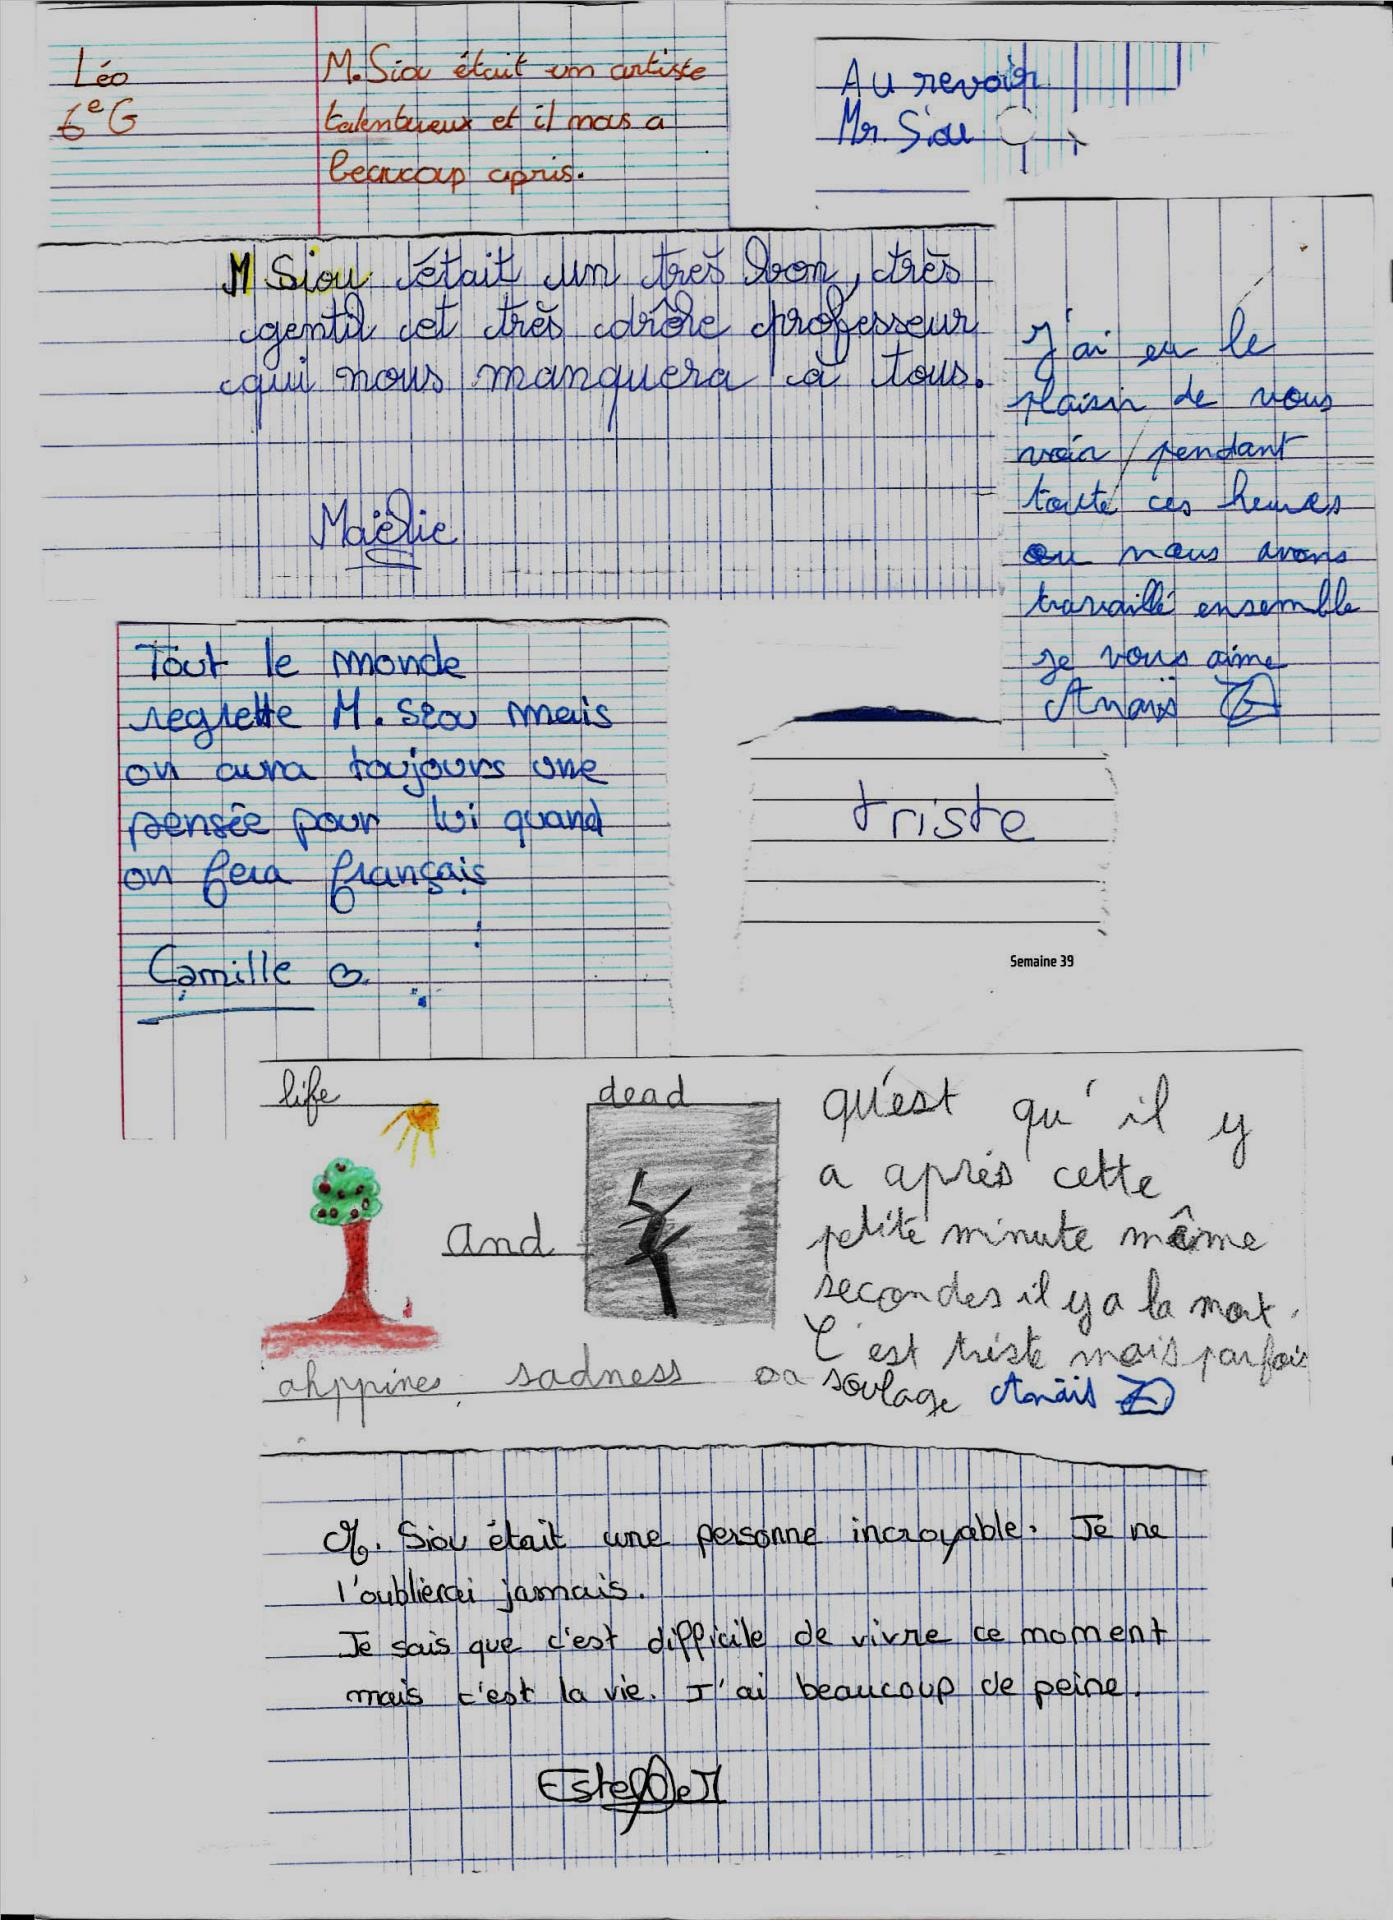 Léo
6e G
M. Siou était un artiste
talentueux et il nous a
beaucoup apris.
Au revoir
Mr. Siou
M Siou était un très bon, très
gentil et très drôle professeur
qui nous manquera à tous.
Maëlie
J'ai eu le
plaisir de vous
voir pendant
toute ces heures
ou nous avons
travaillé ensemble
je vous aime
Anaïs
Tout le monde
regrette M. Siou mais
on aura toujours une
pensée pour lui quand
on fera français
Camille
triste
Semaine 39
life
dead
and
ahppines
sadness
qu'est qu'il y
a après cette
petite minute même
secondes il y a la mort.
C'est triste mais parfois
ou soulage Anaïs
M. Siou était une personne incroyable. Je ne
l'oublierai jamais.
Je sais que c'est difficile de vivre ce moment
mais c'est la vie. J'ai beaucoup de peine.